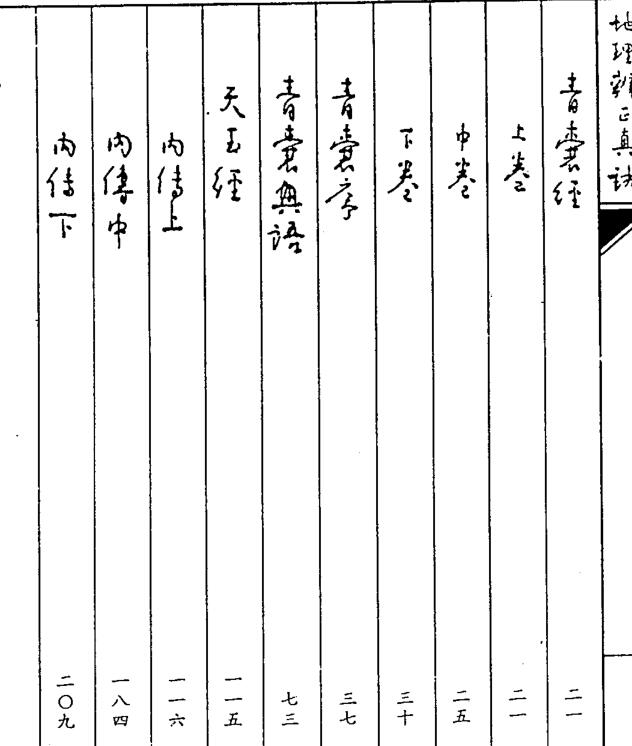 地理辨正真訣
青囊經 二一
上卷 二一
中卷 二五
下卷 三十
青囊序 三七
青囊奧語 七三
天玉經 一一五
內傳上 一一六
內傳中 一八四
內傳下 二〇九